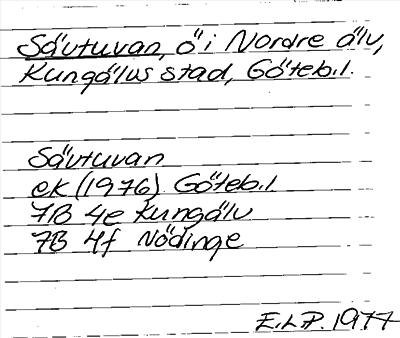 Sävtuvan, ö i Nordre älv,
Kungälvs stad, Göteb.l.
Sävtuvan
ek (1976) Göteb.l
7B 4e Kungälv
7B 4f Nödinge
E.L.P. 1977